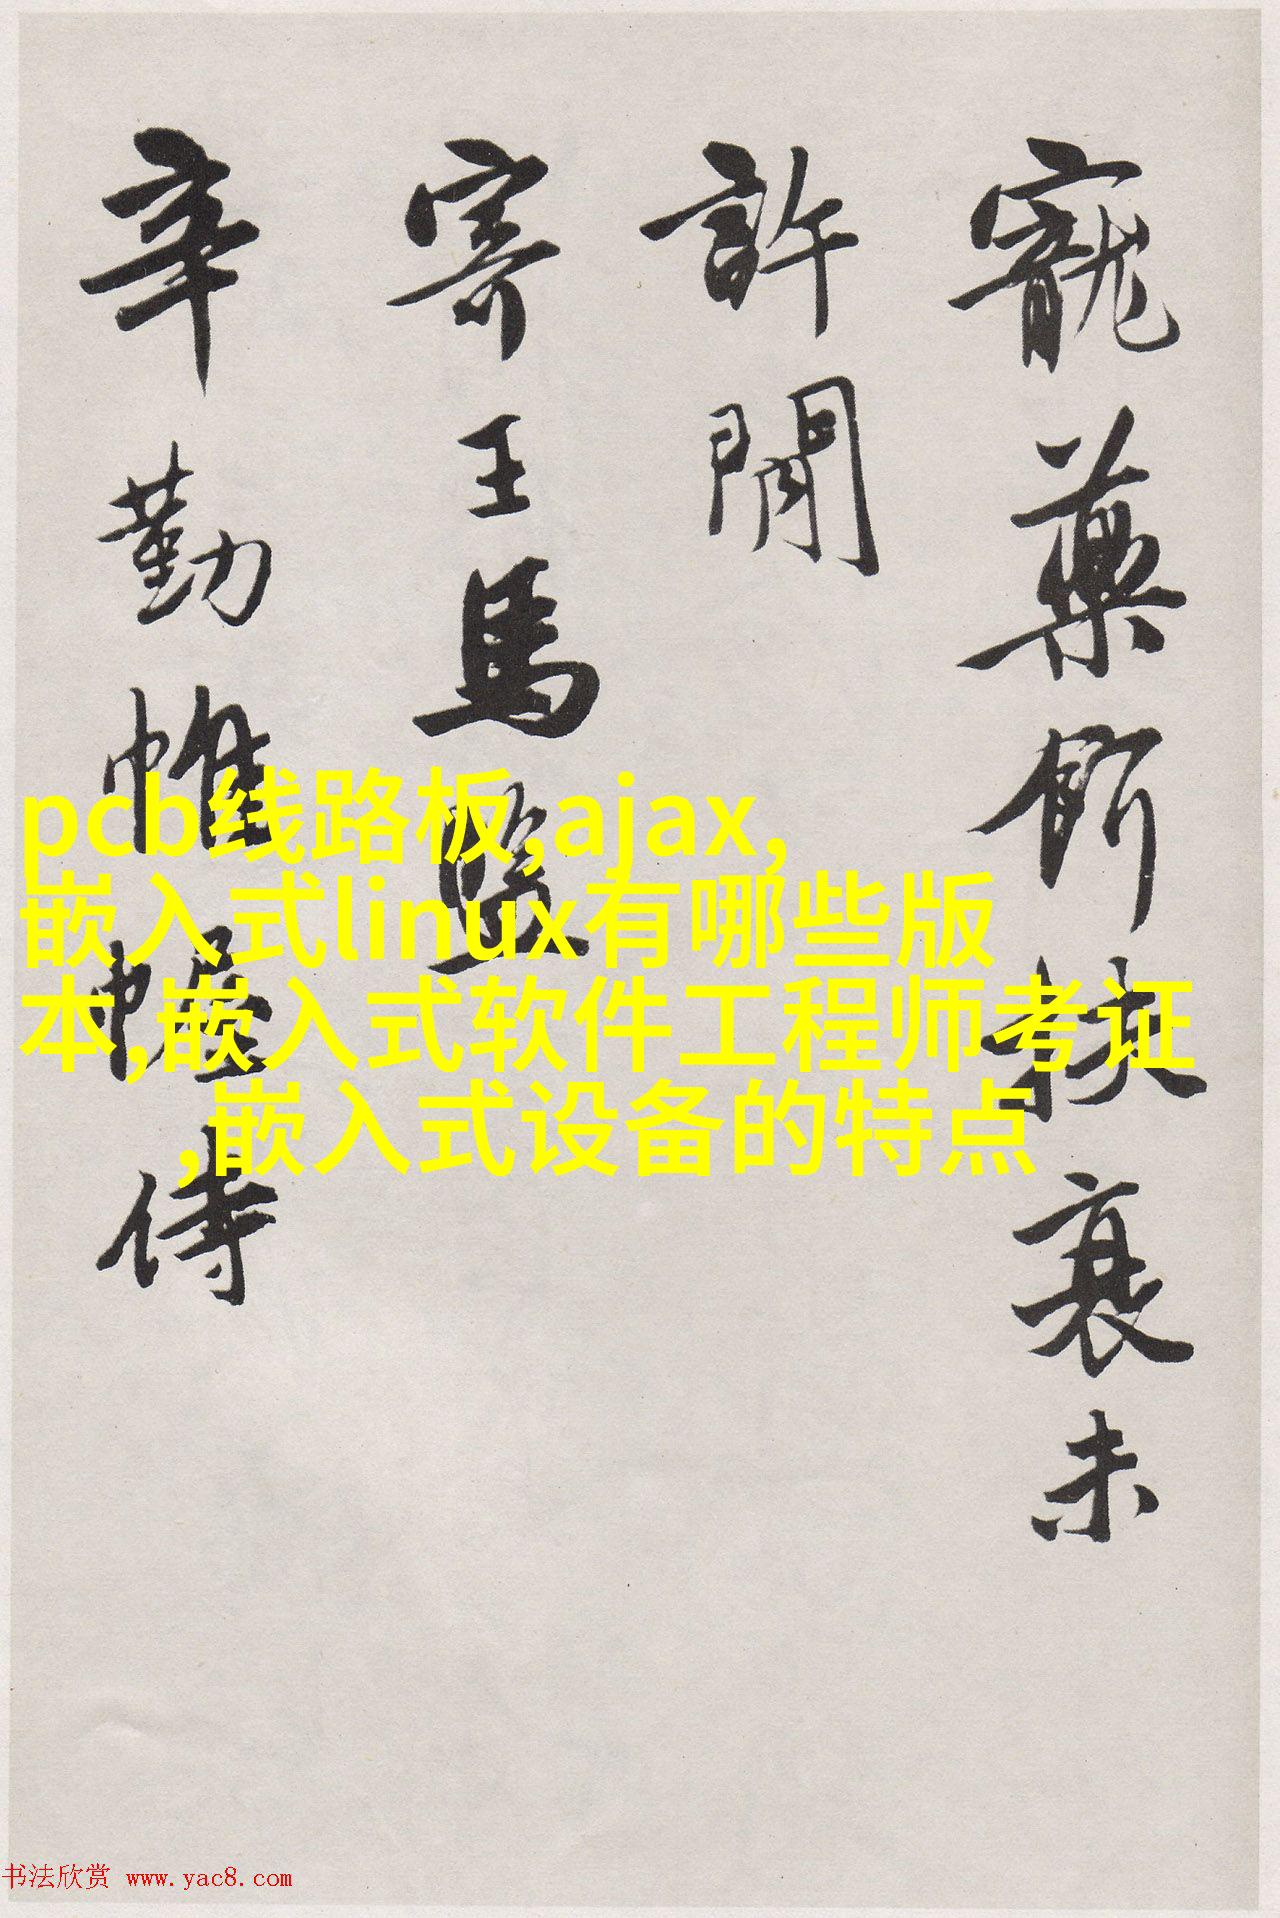 寵藥餌扶衰未
許閒
寄王馬監
辛勤帷幄侍
pcb线路板,ajax,
嵌入式linux有哪些版
本,嵌入式软件工程师考证
,嵌入式设备的特点
书法欣赏 www.yac8.com